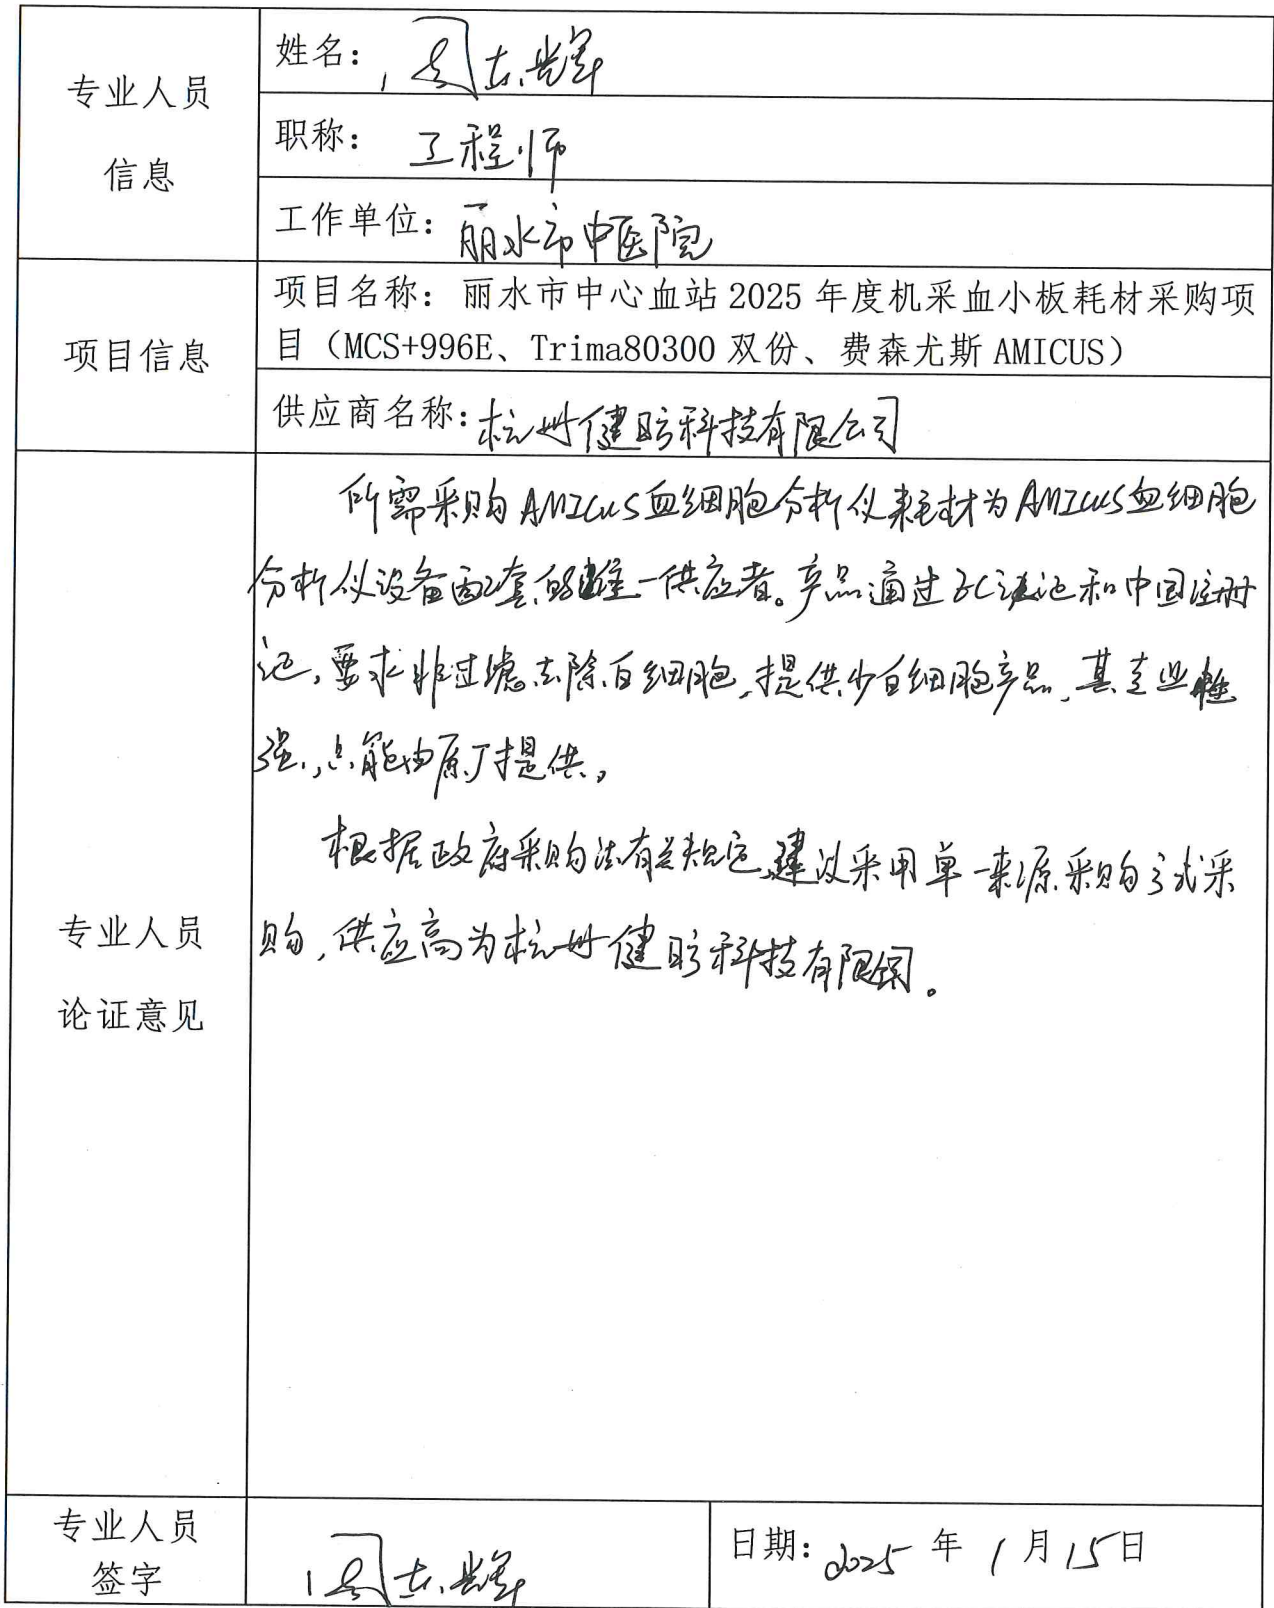 专业人员
信息
姓名：周志辉
职称：工程师
工作单位：丽水市中医院
项目信息
项目名称：丽水市中心血站 2025 年度机采血小板耗材采购项
目（MCS+996E、Trima80300 双份、费森尤斯 AMICUS）
供应商名称：杭州健昉科技有限公司
专业人员
论证意见
所需采购AMICUS血细胞分析仪耗材为AMICUS血细胞
分析仪设备配套的唯一供应者。产品通过认证和中国注册
证，要求非过滤去除白细胞，提供少白细胞产品，其专业性
强，只能由原厂提供。
根据政府采购法有关规定，建议采用单一来源采购方式采
购，供应商为杭州健昉科技有限公司。
专业人员
签字
周志辉
日期：2025 年 1 月 15 日